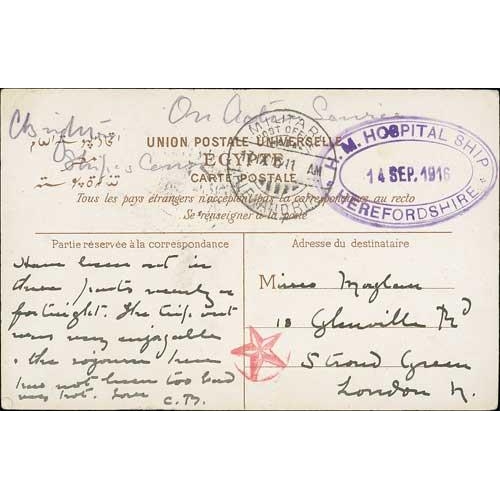 On Active Service
MILITARY
POST OFFICE
11 AM
ALEXANDRIA
H. M. HOSPITAL SHIP
14 SEP. 1916
HEREFORDSHIRE
UNION POSTALE UNIVERSELLE
EGYPTE
CARTE POSTALE
Tous les pays étrangers n'acceptent pas la correspondance au recto
Se renseigner a la poste
Partie réservée à la correspondance
Have been out in
these parts nearly a
fortnight. The trip out
was very enjoyable
& the sojourn here
has not been too bad
very hot. Love
C.B.
Adresse du destinataire
M
18 Glenville Rd
Stroud Green
London N.